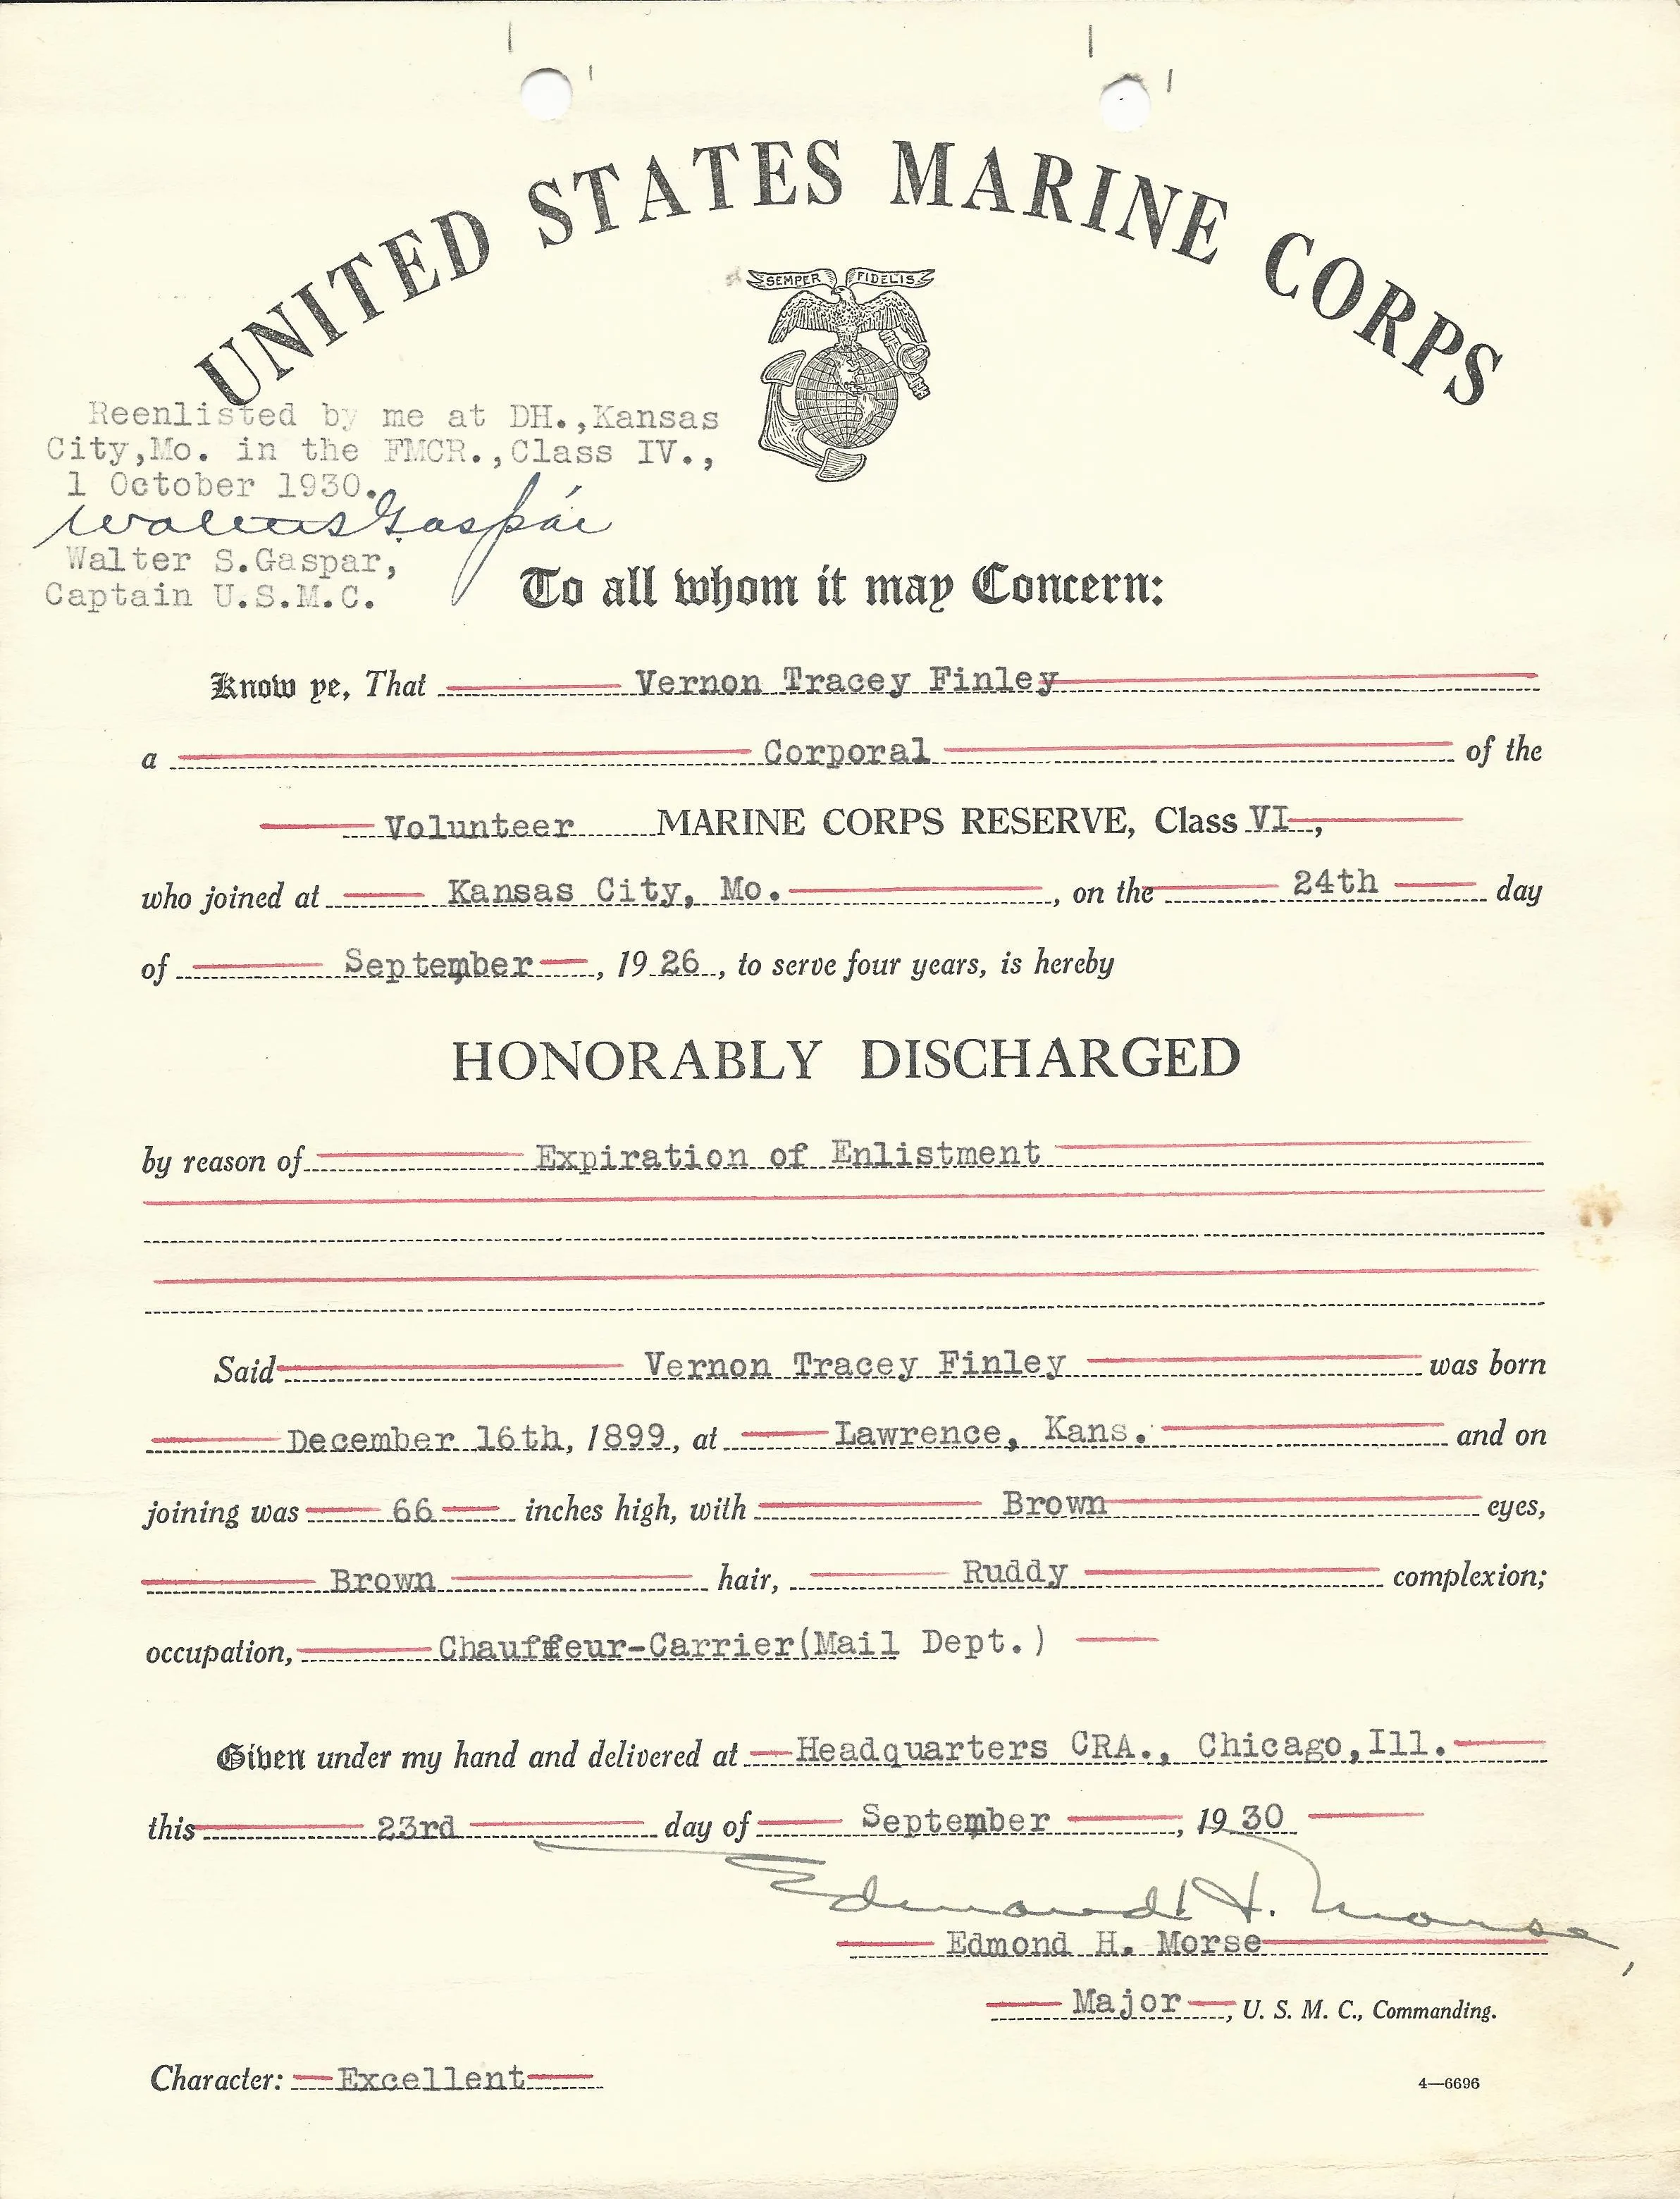 UNITED STATES MARINE CORPS
SEMPER FIDELIS
Reenlisted by me at DH.,Kansas
City,Mo. in the FMCR.,Class IV.,
1 October 1930.
Walter S Gaspar
Walter S.Gaspar,
Captain U.S.M.C.
To all whom it may Concern:
Know ye, That Vernon Tracey Finley
a Corporal of the
Volunteer MARINE CORPS RESERVE, Class VI,
who joined at Kansas City, Mo. , on the 24th day
of September , 1926, to serve four years, is hereby
HONORABLY DISCHARGED
by reason of Expiration of Enlistment
Said Vernon Tracey Finley was born
December 16th, 1899, at Lawrence, Kans. and on
joining was 66 inches high, with Brown eyes,
Brown hair, Ruddy complexion;
occupation, Chauffeur-Carrier(Mail Dept.)
Given under my hand and delivered at Headquarters CRA., Chicago,Ill.
this 23rd day of September , 1930
Edmond H. Morse,
Edmond H. Morse
Major , U. S. M. C., Commanding.
Character: Excellent
4—6696